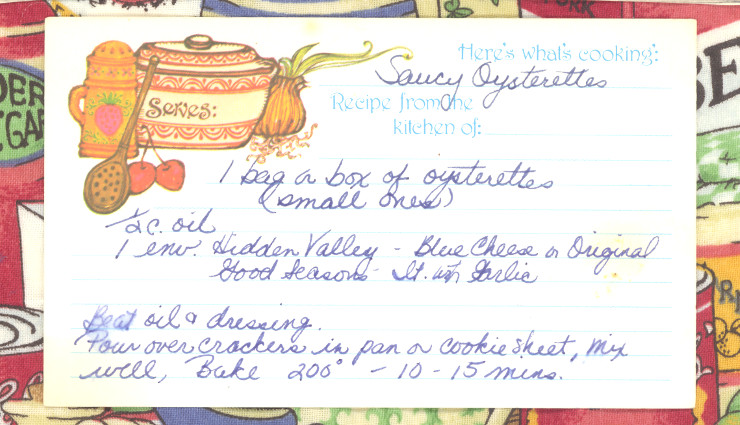 Here's what's cooking:
Saucy Oysterettes
Recipe from the
kitchen of:
Serves:
1 bag or box of oysterettes
(small ones)
1/2 c. oil
1 env. Hidden Valley - Blue Cheese or Original
Good Seasons - It. with Garlic
Beat oil & dressing.
Pour over crackers in pan or cookie sheet, mix
well, Bake 200° - 10 - 15 mins.
DER
GAR
BE